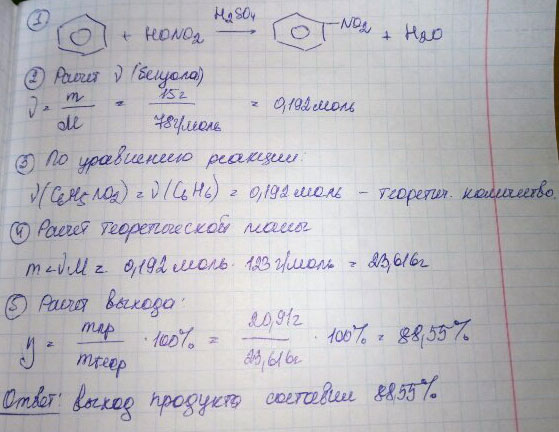 ① + HONO2 H2SO4 → NO2 + H2O
② Расчет ν (бензола)
ν = m/M = 15г/78г/моль = 0,192 моль
③ По уравнению реакции:
ν(C6H5NO2) = ν(C6H6) = 0,192 моль – теоретич. количество
④ Расчет теоретической массы
m = νM = 0,192 моль · 123 г/моль = 23,616г
⑤ Расчет выхода:
y = mпр/mтеор · 100% = 20,91г/23,616г · 100% = 88,55%
Ответ: выход продукта составил 88,55%